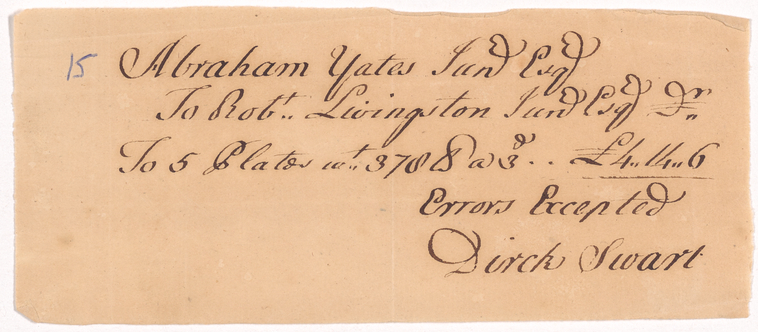 15
Abraham Yates Junr Esqr
To Robt.. Livingston Junr Esqr Dr..
To 5 Plates wt.. 378 ℔ a 3d .. £4..14..6
Errors Excepted
Dirck Swart